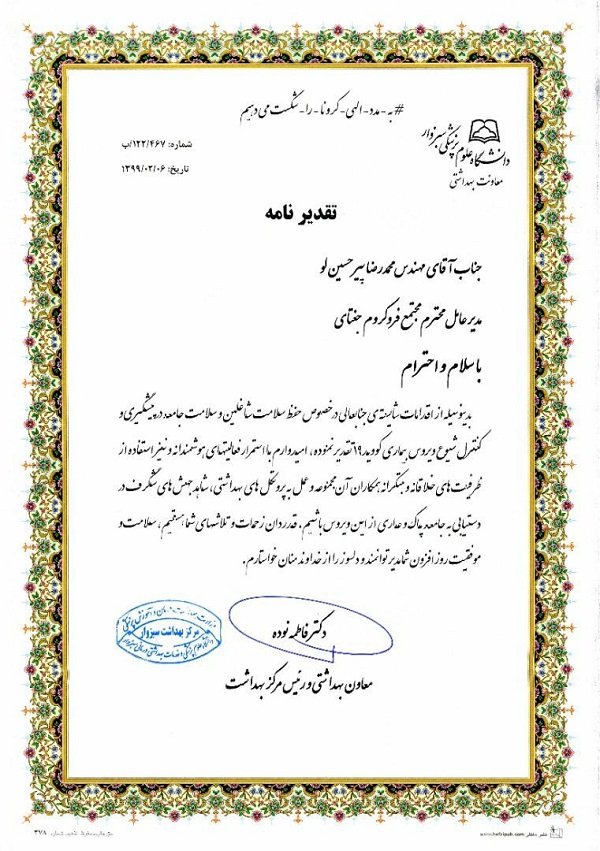 #به-مدد-الهی-کرونا-را-شکست-می‌دهیم
دانشگاه علوم پزشکی سبزوار
معاونت بهداشتی
شماره: ۱۲۲/۴۶۷/ب
تاریخ: ۱۳۹۹/۰۲/۰۶
تقدیر نامه
جناب آقای مهندس محمدرضا پیرحسین لو
مدیرعامل محترم مجتمع فروکروم جغتای
با سلام و احترام
بدینوسیله از اقدامات شایسته‌ی جنابعالی در خصوص حفظ سلامت شاغلین و سلامت جامعه در پیشگیری و
کنترل شیوع ویروس بیماری کووید ۱۹ تقدیر نموده، امیدوارم با استمرار فعالیتهای هوشمندانه و نیز استفاده از
ظرفیت های خلاقانه و مبتکرانه همکاران آن مجموعه و عمل به پروتکل های بهداشتی، شاهد جهش های شگرف در
دستیابی به جامعه پاک و عاری از این ویروس باشیم. قدردان زحمات و تلاشهای شما هستیم، سلامت و
موفقیت روزافزون شما مدیر توانمند و دلسوز را از خداوند منان خواستارم.
دکتر فاطمه نوده
معاون بهداشتی و رئیس مرکز بهداشت
مرکز بهداشت سبزوار
۴۷۸